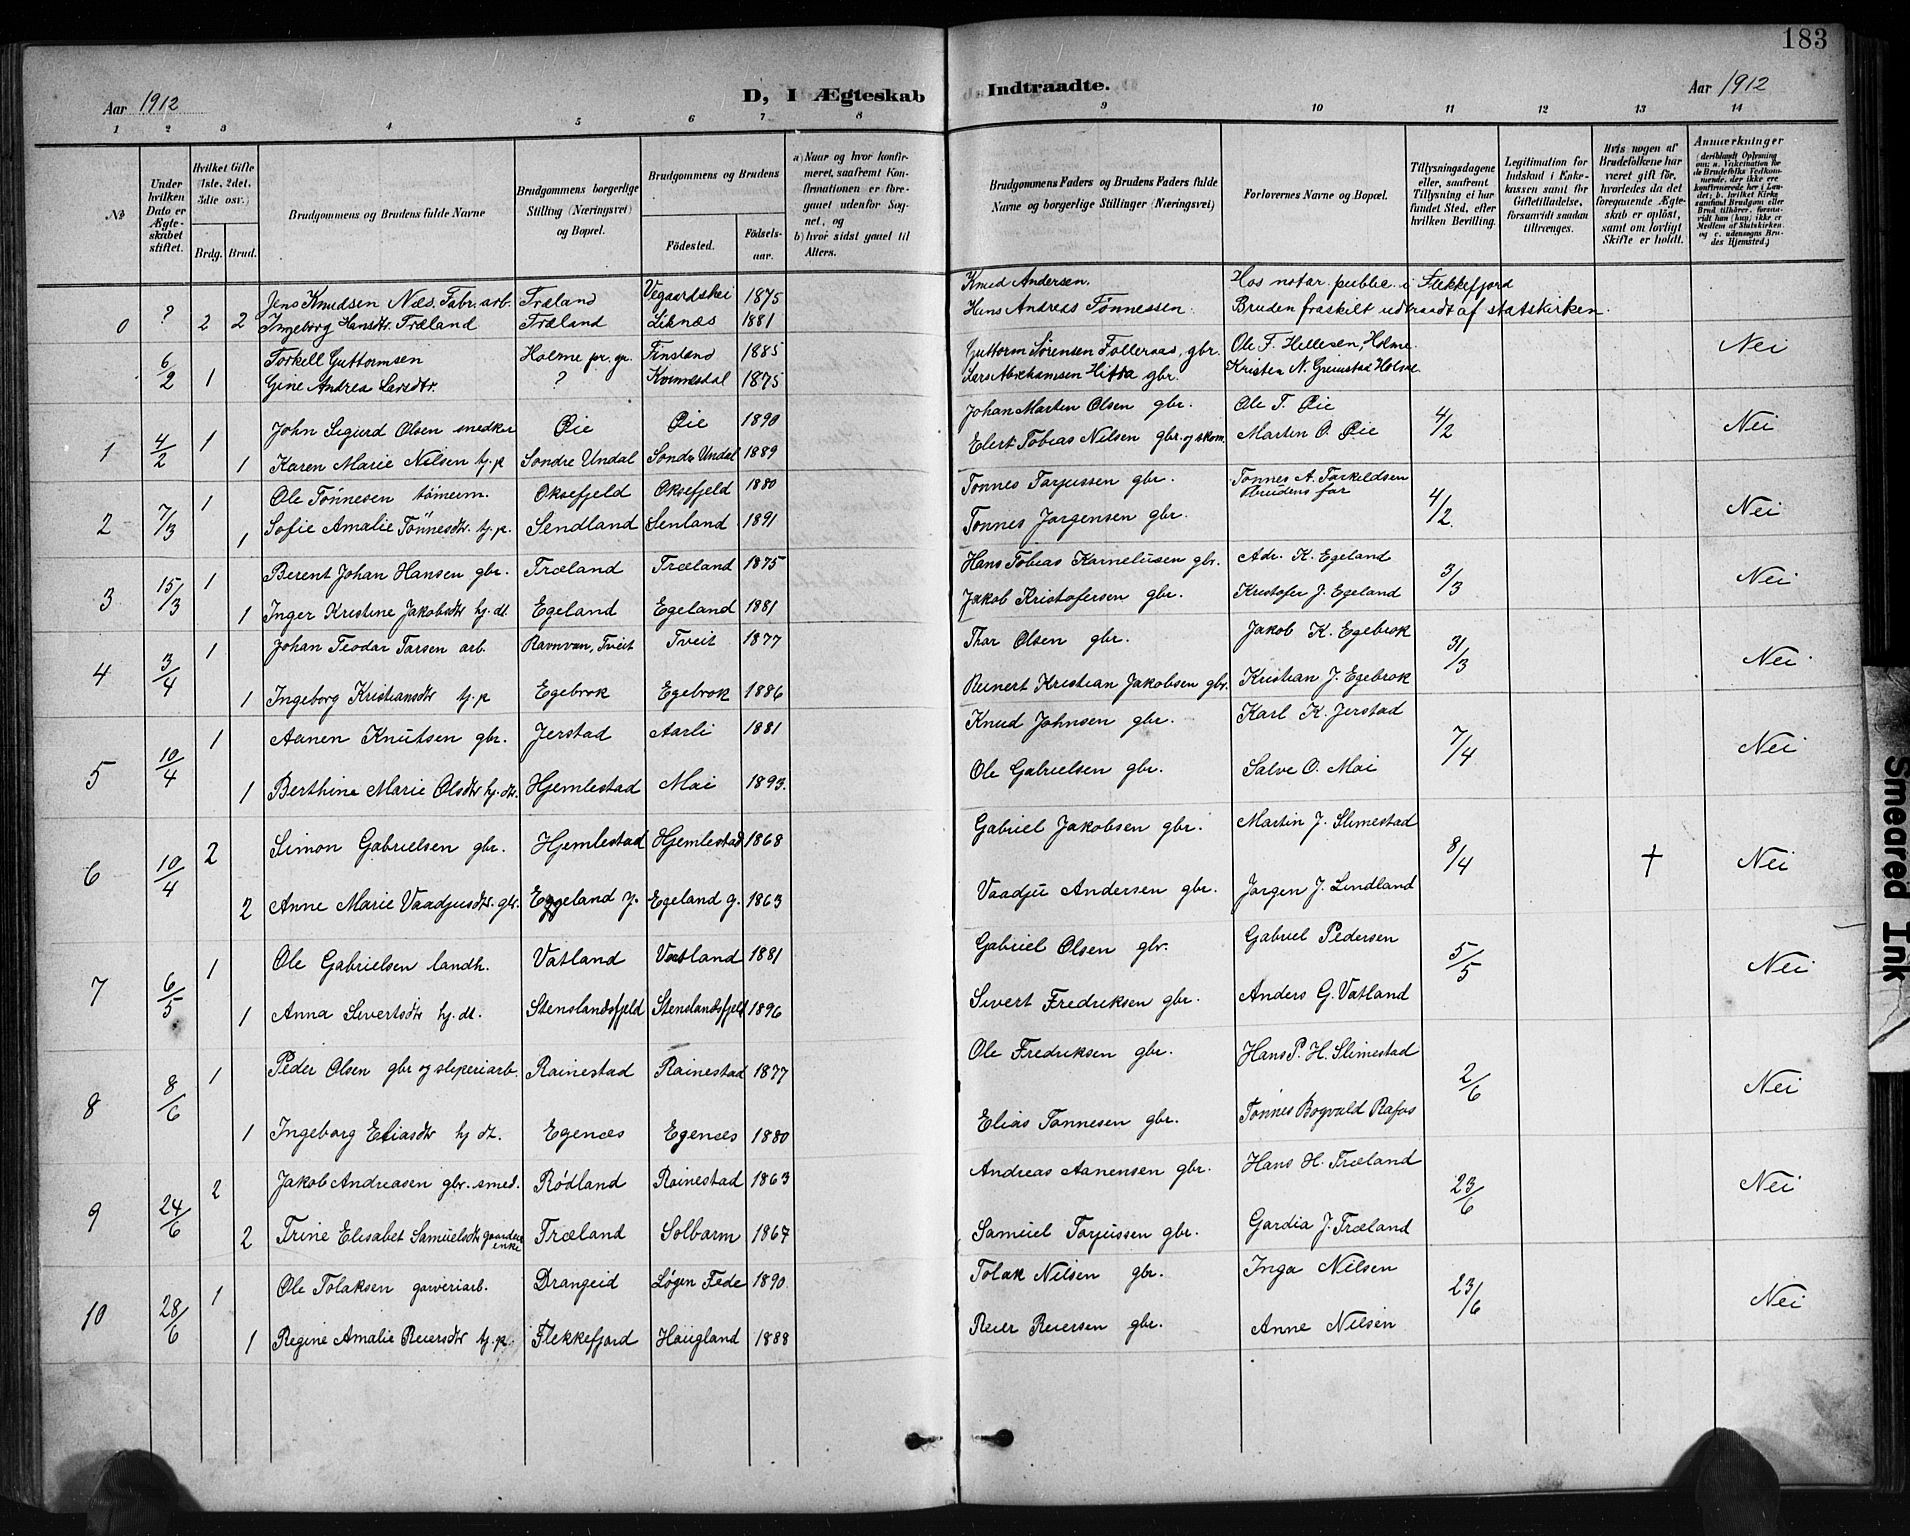 183
Aar 1912
D, I Ægteskab Indtraadte.
Aar 1912
1 2 3 4 5 6 7 8 9 10 11 12 13 14
No
Under hvilken Dato er Ægteskabet stiftet.
Hvilket Gifte (1ste, 2det, 3die osv.)
Brdg. Brud.
Brudgommens og Brudens fulde Navne
Brudgommens borgerlige Stilling (Næringsvei) og Bopæl.
Brudgommens og Brudens
Födested.
Födselsaar.
a) Naar og hvor konfirmeret, saafremt Konfirmationen er foregaaet udenfor Sognet, og
b) hvor sidst gaaet til Alters.
Brudgommens Faders og Brudens Faders fulde Navne og borgerlige Stillinger (Næringsvei)
Forlovernes Navne og Bopæl.
Tillysningsdagene eller, saafremt Tillysning ei har fundet Sted, efter hvilken Bevilling.
Legitimation for Indskud i Enkekassen samt for Giftetilladelse, forsaavidt saadan tiltrænges.
Hvis nogen af Brudefolkene har været gift för, hvorledes da det foregaaende Ægteskab er oplöst, samt om lovligt Skifte er holdt.
Anmærkninger
(deriblandt Oplysning om: a. Vakcination for de Brudefolks Vedkommende, der ikke ere konfirmerede her i Landet; b. hvilket Kirkesamfund Brudgom eller Brud tilhörer, forsaavidt han (hun) ikke er Medlem af Statskirken, og c. udensogns Brudes Hjemsted.)
0 ? 2 2 Jens Knudsen Næs. Fabr. arb. Træland Vegaardshei 1875 Knud Andersen. Hos notar. public. i Flekkefjord
Ingeborg Hansdtr. Træland Træland Liknæs 1881 Hans Andreas Tønnessen Bruden fraskilt udtraadt af statskirken.
6/2 1 Torkell Guttormsen Holme pr. gr. Finsland 1885 Guttorm Sørensen Folleraas, gbr. Ole F. Hellesen, Holme. Nei
Gine Andrea Larsdtr. ? 1875 Lars Abrahamsen gbr. Kristen N. Grimstad Holme
1 4/2 1 John Sigurd Olsen snedker Øie Øie 1890 Johan Marten Olsen gbr. Ole T. Øie 4/2 Nei
1 Karen Marie Nilsen tj. p Sondre Undal Sondre Undal 1889 Elert Tobias Nilsen gbr. og skom. Martin O. Øie
2 7/3 1 Ole Tönnesen tömerm. Oksefjeld Oksefjeld 1880 Tonnes Tarjussen gbr. Tonnes A. Tarkeldsen 4/2. Nei
brudens far
1 Sofie Amalie Tönnesdtr. tj. p. Sendland Senland 1891 Tonnes Jorgensen gbr.
3 15/3 1 Berent Johan Hansen gbr. Træland Træland 1875 Hans Tobias Kornelusen gbr. Adr. K. Egeland 3/3 Nei
1 Inger Kristine Jakobsdtr hj. dt. Egeland Egeland 1881 Jakob Kristofersen gbr. Kristofer J. Egeland
4 3/4 1 Johan Teodor Tarsen arb. Ravnvan, Tveit Tveit 1877 Thor Olsen gbr. Jakob K. Egebrok 31/3 Nei
1 Ingeborg Kristiansdtr tj. p Egebrok Egebrok 1886 Reinert Kristian Jakobsen gbr. Kristian J. Egebrok
5 10/4 1 Aanen Knutsen gbr. Jerstad Aarli 1881 Knud Johnsen gbr. Karl K. Jerstad 7/4 Nei
1 Berthine Marie Olsdtr hj. dt. Hjemlestad Moi 1893. Ole Gabrielsen gbr. Salve O. Moi
6 10/4 2 Simon Gabrielsen gbr. Hjemlestad Hjemlestad 1868 Gabriel Jakobsen gbr. Martin J. Slimestad 8/4 † Nei
2 Anne Marie Vaadjusdtr. gbr. Egeland y. Egeland y. 1863 Vaadju Andersen gbr. Jorgen J. Lindland
7 6/5 1 Ole Gabrielsen landh. Vatland Vatland 1881 Gabriel Olsen gbr. Gabriel Pedersen 5/5 Nei
1 Anna Sivertsdtr hj. dt. Stenslandsfjeld Stenslandsfjeld 1896 Sivert Fredriksen gbr. Anders G. Vatland
8 8/6 1 Peder Olsen gbr og sliperiarb. Rainestad Rainestad 1877 Ole Fredriksen gbr. Hans P. H. Slimestad 2/6 Nei
1 Ingeborg Eliasdtr hj dt. Egenæs Egenæs 1880 Elias Tonnesen gbr. Tonnes Bogvald Rafos
9 24/6 2 Jakob Andreasen gbr. smed. Rødland Rainestad 1863 Andreas Aanensen gbr. Hans H. Træland 23/6 Nei
2 Trine Elisabet Samuelsdtr gaardenke Træland Solbarm 1867 Samuel Tarjussen gbr. Gardia J. Træland
10 28/6 1 Ole Tolaksen garveriarb. Drangeid Løgen Fede 1890. Tolak Nilsen gbr. Inga Nilsen 23/6 Nei
1 Regine Amalie Reiersdtr tj. p. Flekkefjord Haugland 1888 Reier Reiersen gbr. Anne Nilsen
Smeared Ink